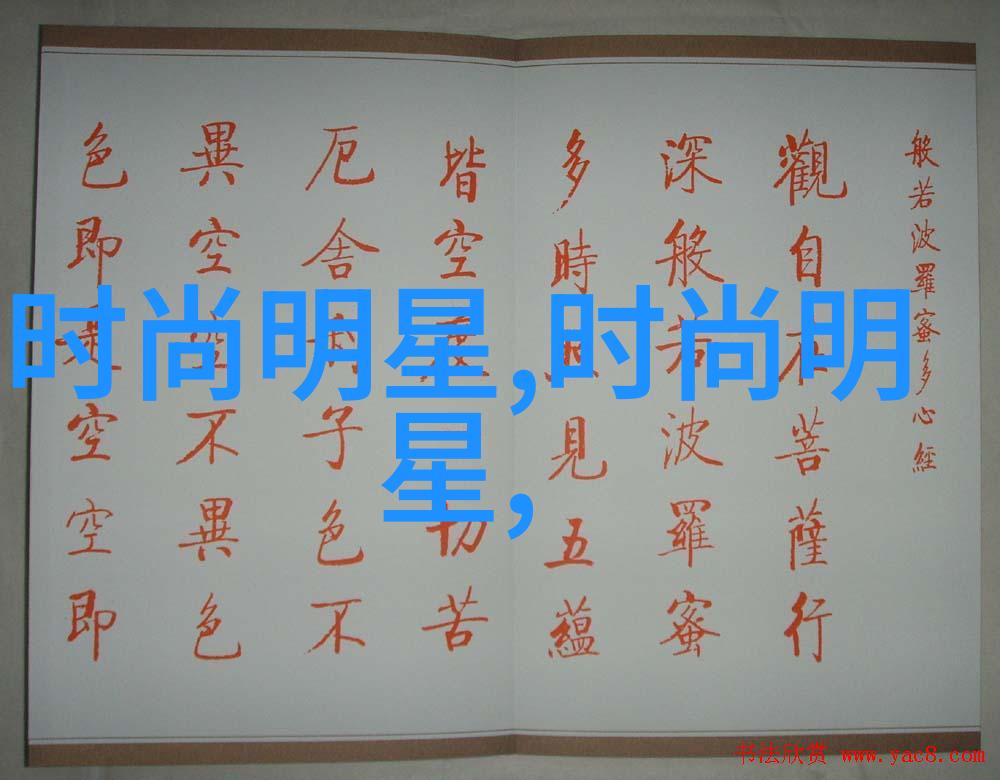 般若波羅蜜多心經
觀自在菩薩行
深般若波羅蜜
多時見五蘊
皆空度切苦
厄舍利子色不
異空空不異色
色即是空空即
时尚明星,时尚明
星,
书法欣赏 www.yac8.com